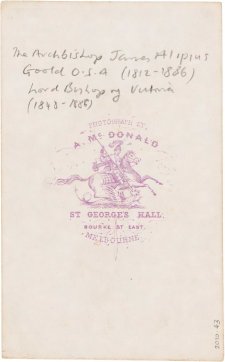 The Archbishop James Alipius
Goold O.S.A (1812-1886)
Lord Bishop of Victoria
(1848-1886)
PHOTOGRAPH BY
A. McDONALD
ST GEORGE'S HALL.
BOURKE ST EAST.
MELBOURNE
2010.43